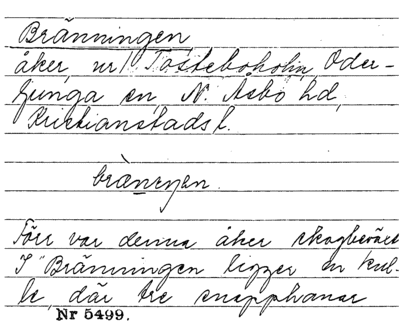 Bränningen
åker, nr 1 Tosteboholm, Oder-
ljunga sn N. Åsbo hd,
Kristianstads l.
brànenen.
Förr var denna åker skogbeväxt
I "Bränningen ligger en kul-
le, där tre snapphanar
Nr 5499.